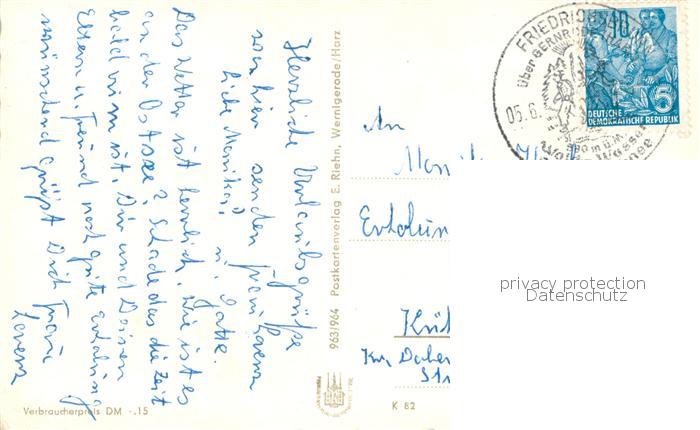 Herzliche Urlaubsgrüße
von hier senden Frau Lorenz
Liebe Monika! u. Gatte.
Das Wetter ist herrlich. Wie ist es
an der Ostsee? Schade das die Zeit
bald um ist. Dir und Deinen
Eltern u. Freund noch gute Erholung
wünschend grüßt Dich Frau
Lorenz
Verbraucherpreis DM -.15
963/964 Postkartenverlag E. Riehn, Wernigerode/Harz
K 82
FRIEDRICHS
über GERNRODE
05.6.
10
DEUTSCHE
DEMOKRATISCHE REPUBLIK
5
An
Erholun
privacy protection
Datenschutz